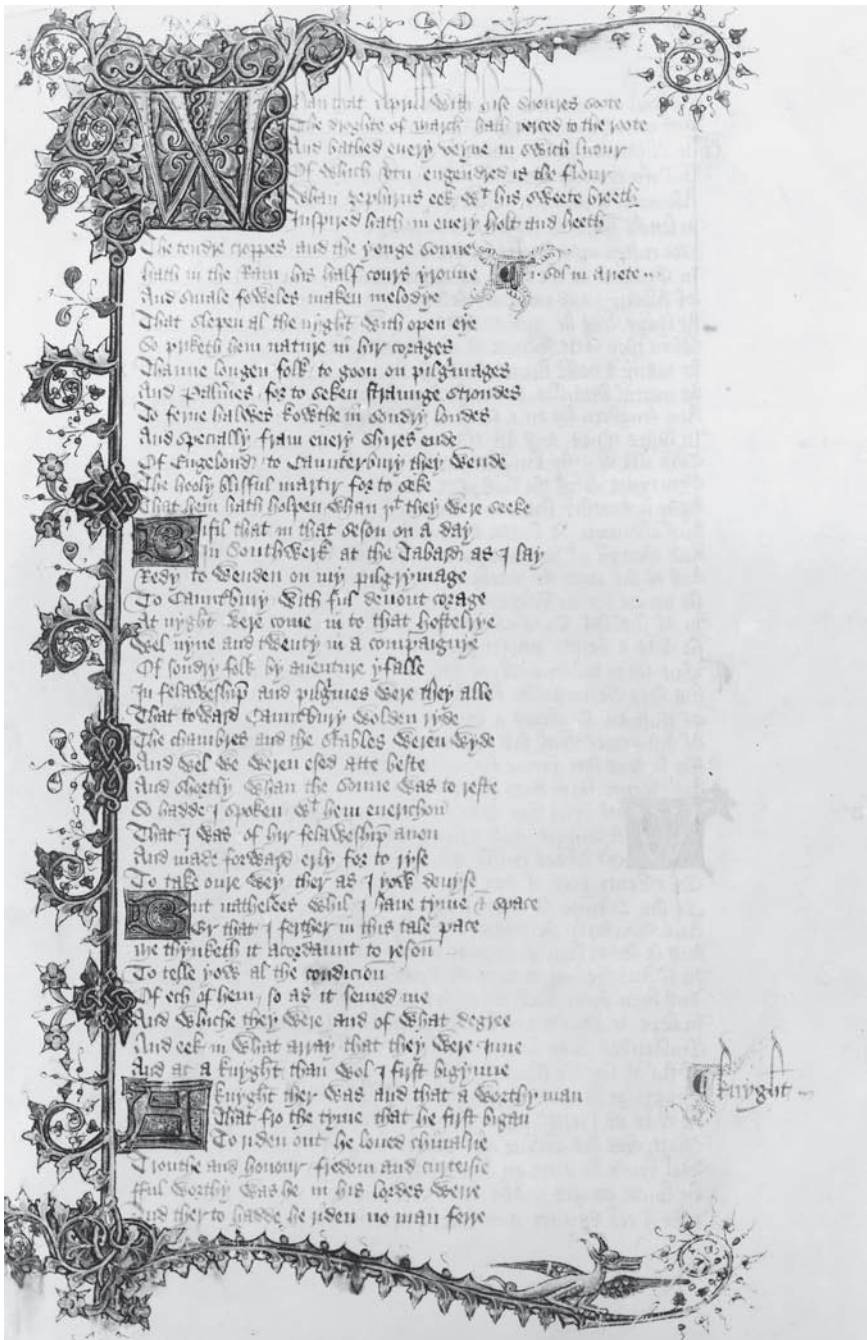 Whan that Aprill with hise shoures soote
The droghte of march hath perced to the roote
And bathed euery veyne in swich licour
Of which vtu engendred is the flour
Whan zephirus eek wt his sweete breeth
Inspired hath in euery holt and heeth
The tendre croppes and the yonge sonne
hath in the Ram his half cours yronne ¶ i sol in ariete
And smale foweles maken melodye
That slepen al the nyght with open eye
So priketh hem nature in hir corages
Thanne longen folk to goon on pilgrimages
And Palmeres for to seken straunge strondes
To ferne halwes kowthe in sondry londes
And specially fram euery shires ende
Of Engelond to Caunterbury they wende
The hooly blisful martir for to seke
That hem hath holpen whan yt they were seeke
Bifil that in that seson on a day
In Southwerk at the Tabard as I lay
Redy to wenden on my pilgrymage
To Cauntbury with ful deuout corage
At nyght were come in to that hostelrye
Wel nyne and twenty in a compaignye
Of sondry folk by auenture yfalle
In felaweship and pilgrimes were they alle
That toward Cauntbury wolden ryde
The chambres and the stables weren wyde
And wel we weren esed atte beste
And shortly whan the sonne was to reste
So hadde I spoken wt hem euerichon
That I was of hir felaweship anon
And made forward erly for to ryse
To take oure wey ther as I yow deuyse
But nathelees whil I haue tyme & space
Er that I ferther in this tale pace
me thynketh it acordaunt to reson
To telle yow al the condicion
Of ech of hem so as it semed me
And whiche they were and of what degree
And eek in what array that they were Inne
And at a knyght than wol I first bigynne
A knyght ther was and that a worthy man ¶ knyght
That fro the tyme that he first bigan
To riden out he loued chiualrie
Trouthe and honour fredom and curteisie
fful worthy was he in his lordes werre
And ther to hadde he riden no man ferre